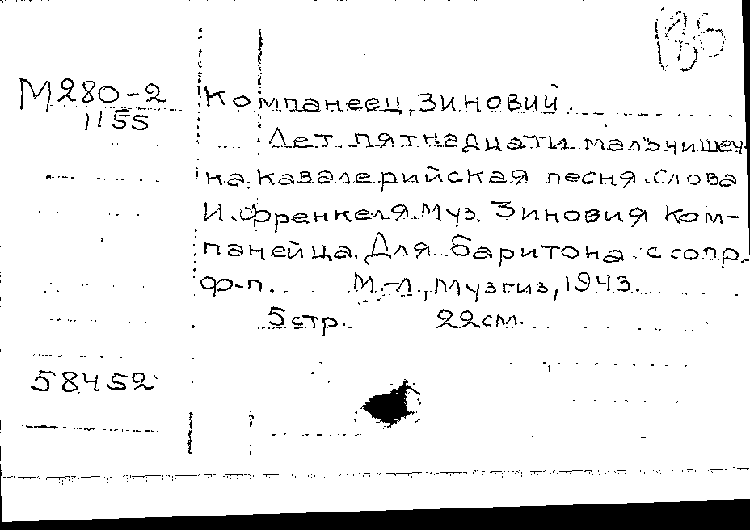 186
М280-2
1155
Компанеец, Зиновий.
Лет пятнадцати мальчишеч-
на. Кавалерийская песня. Слова
И. Френкеля. Муз. Зиновия Ком-
панейца. Для баритона с сопр.
ф-п. М.-Л., Музгиз, 1943.
5 стр. 22 см.
58452